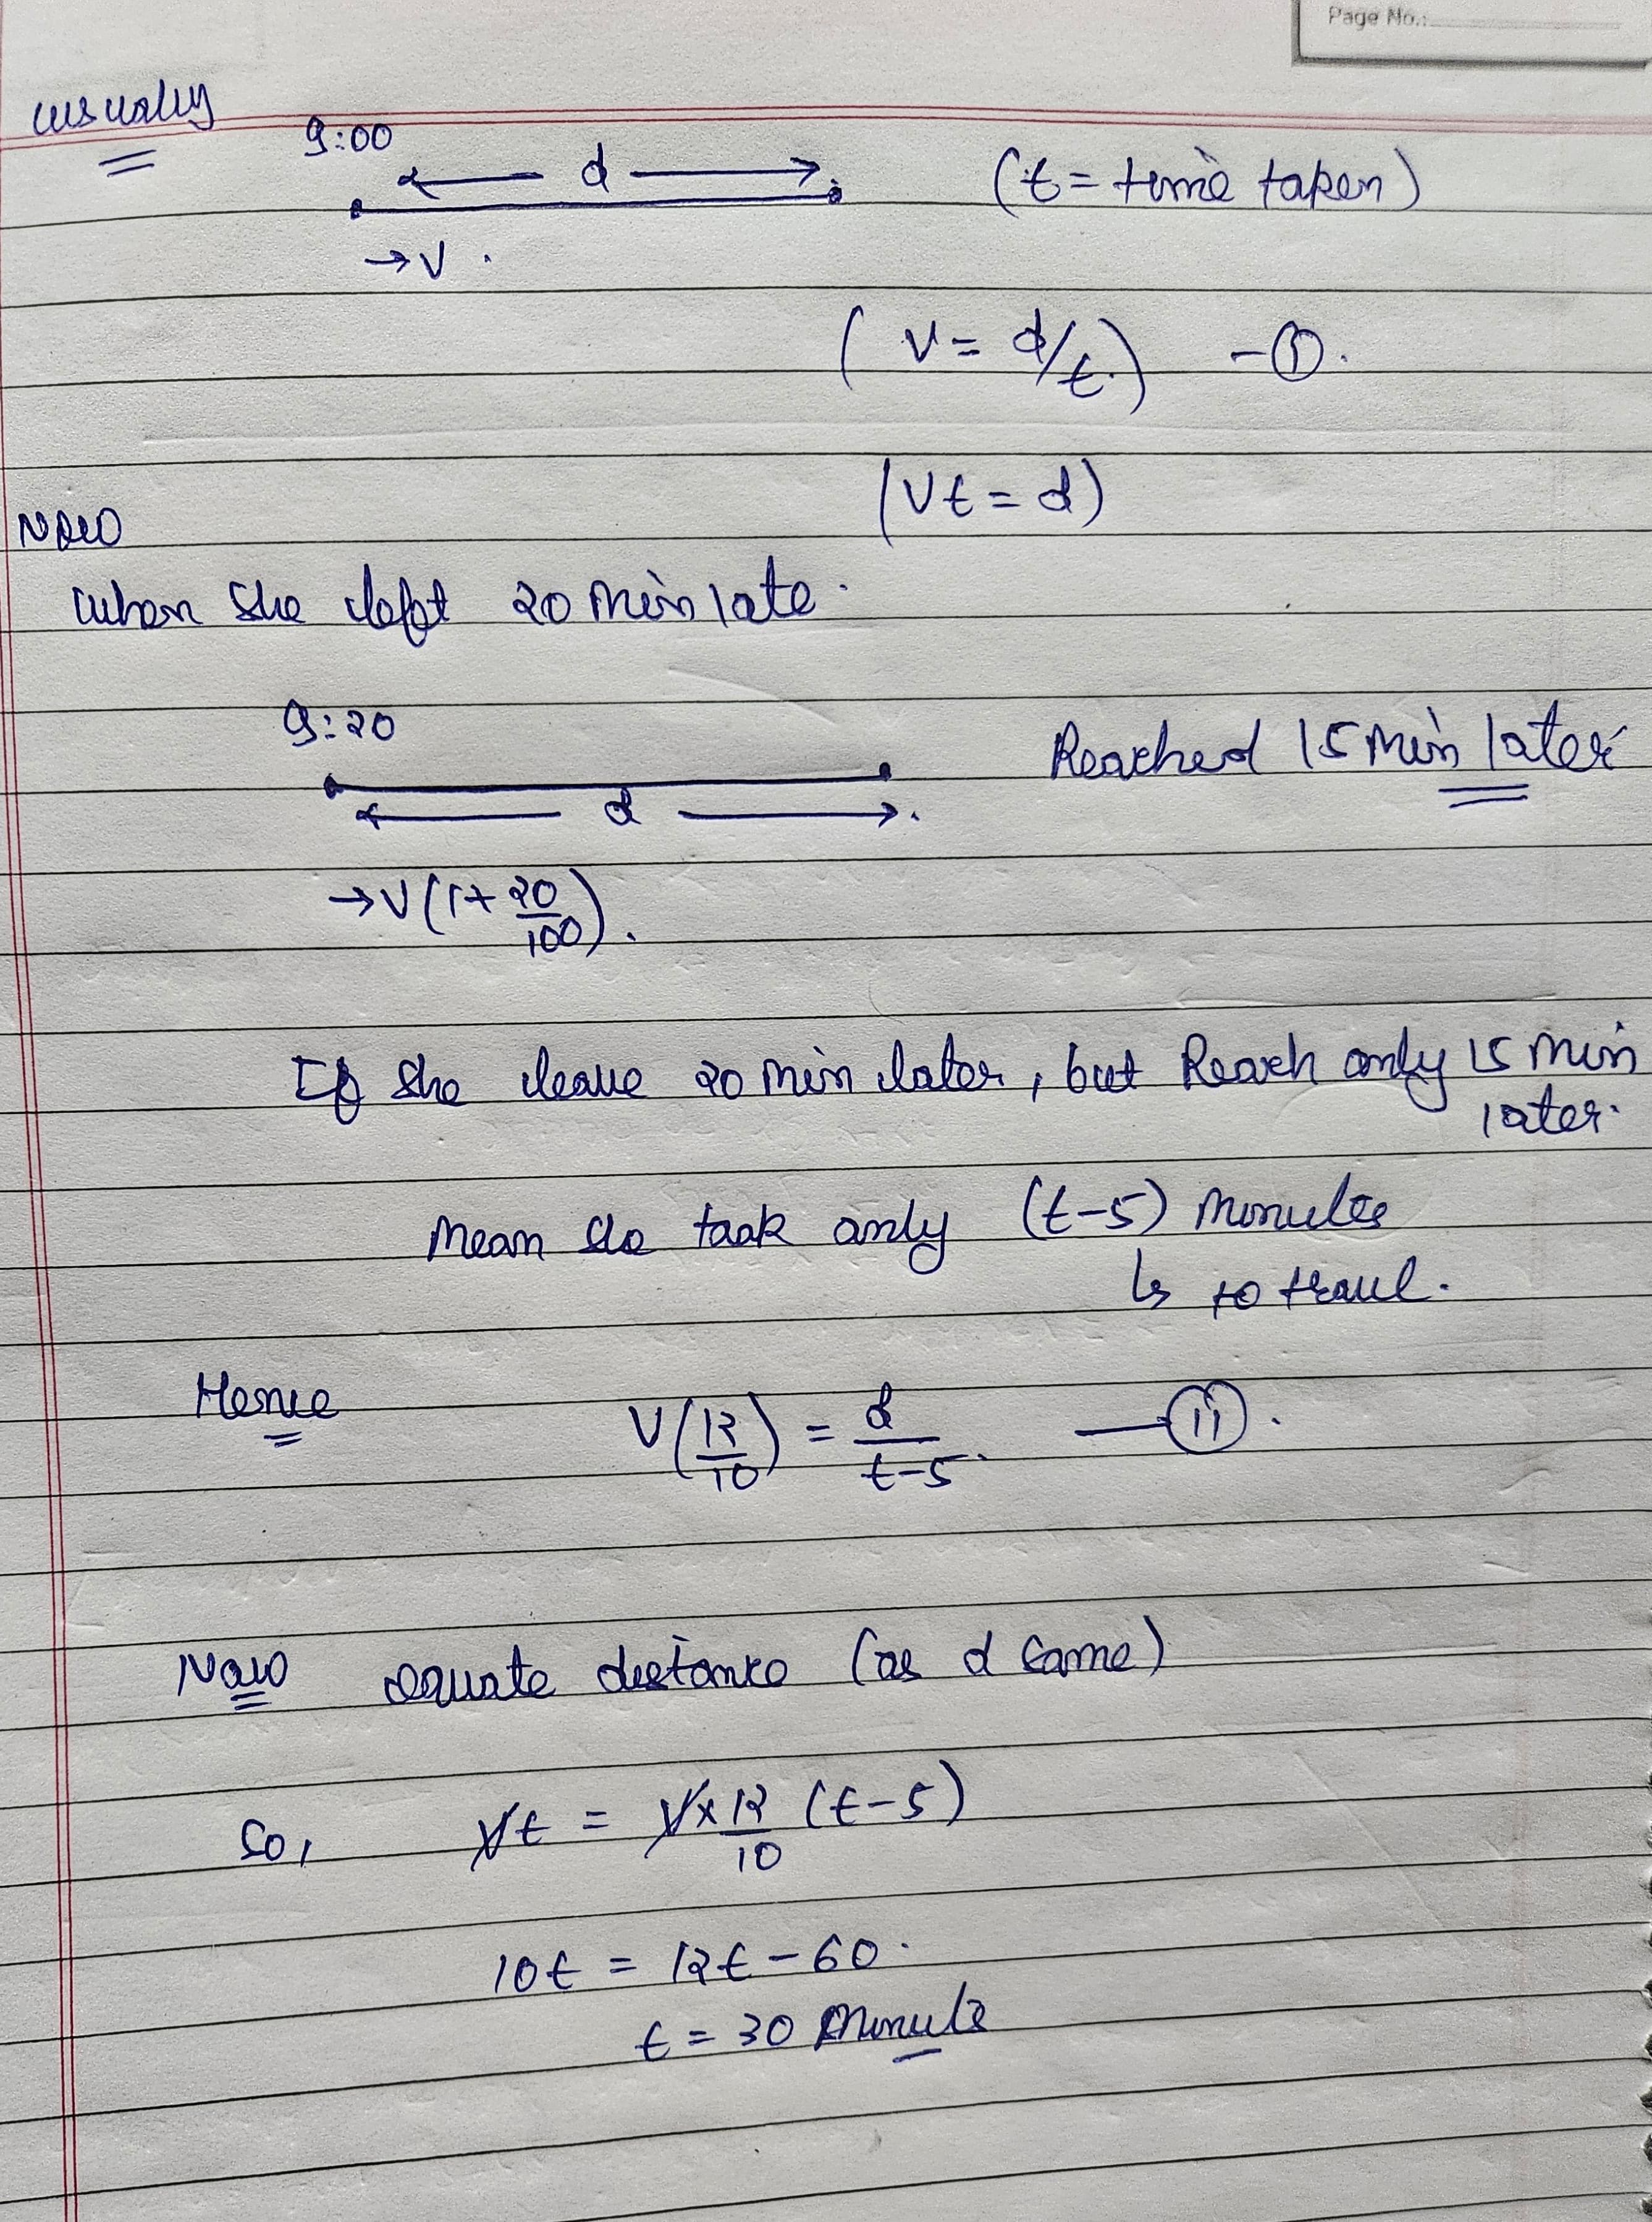 Page No.:
usually
9:00
d
(t = time taken)
→ V .
( V = d/t ) - ①.
(Vt = d)
Now
when she left 20 min late.
9:20
Reached 15 min later
d
→ V(1+ 20/100).
If she leave 20 min later, but Reach only 15 min
later.
mean she took only (t-5) minutes
↳ to travel.
Hence V(12/10) = d/t-5. — ⓘⓘ.
Now equate distance (as d same)
So, Vt = V x 12/10 (t-5)
10t = 12t - 60.
t = 30 minute